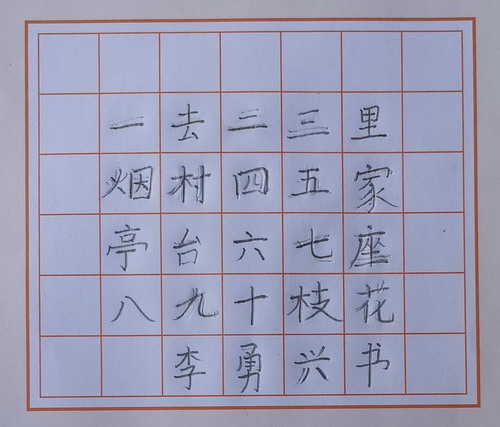 一去二三里
烟村四五家
亭台六七座
八九十枝花
李勇兴书